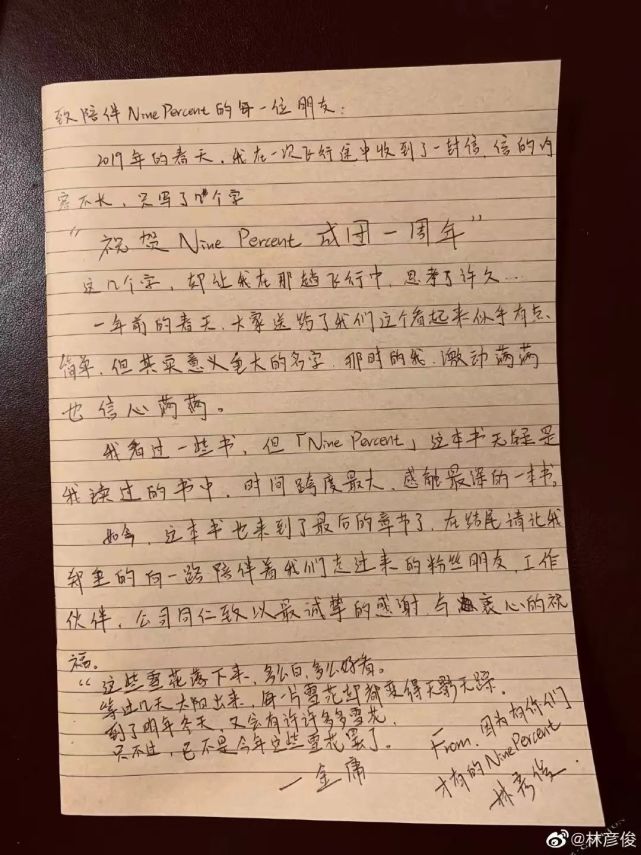 致陪伴NinePercent的每一位朋友：
2019年的春天，我在一次飞行途中收到了一封信，信的内
容不长，只写了几个字
“祝贺Nine Percent 成团一周年”
这几个字，却让我在那趟飞行中，思考了许久...
一年前的春天，大家送给了我们这个看起来似乎有点
简单，但其实意义重大的名字，那时的我，激动满满
也信心满满。
我看过一些书，但「Nine Percent」这本书无疑是
我读过的书中，时间跨度最大，感触最深的一本书。
如今，这本书也来到了最后的章节了，在结尾请让我
郑重的向一路陪伴着我们走过来的粉丝朋友，工作
伙伴，公司同仁致以最诚挚的感谢，与衷心的祝
福。
“这些雪花落下来，多么白，多么好看。
等过几天太阳出来，每一片雪花却都变得无影无踪。
到了明年冬天，又会有许许多多雪花，
只不过，已不是今年这些雪花罢了。
—金庸
From，因为有你们
才有的NinePercent
林彦俊
@林彦俊